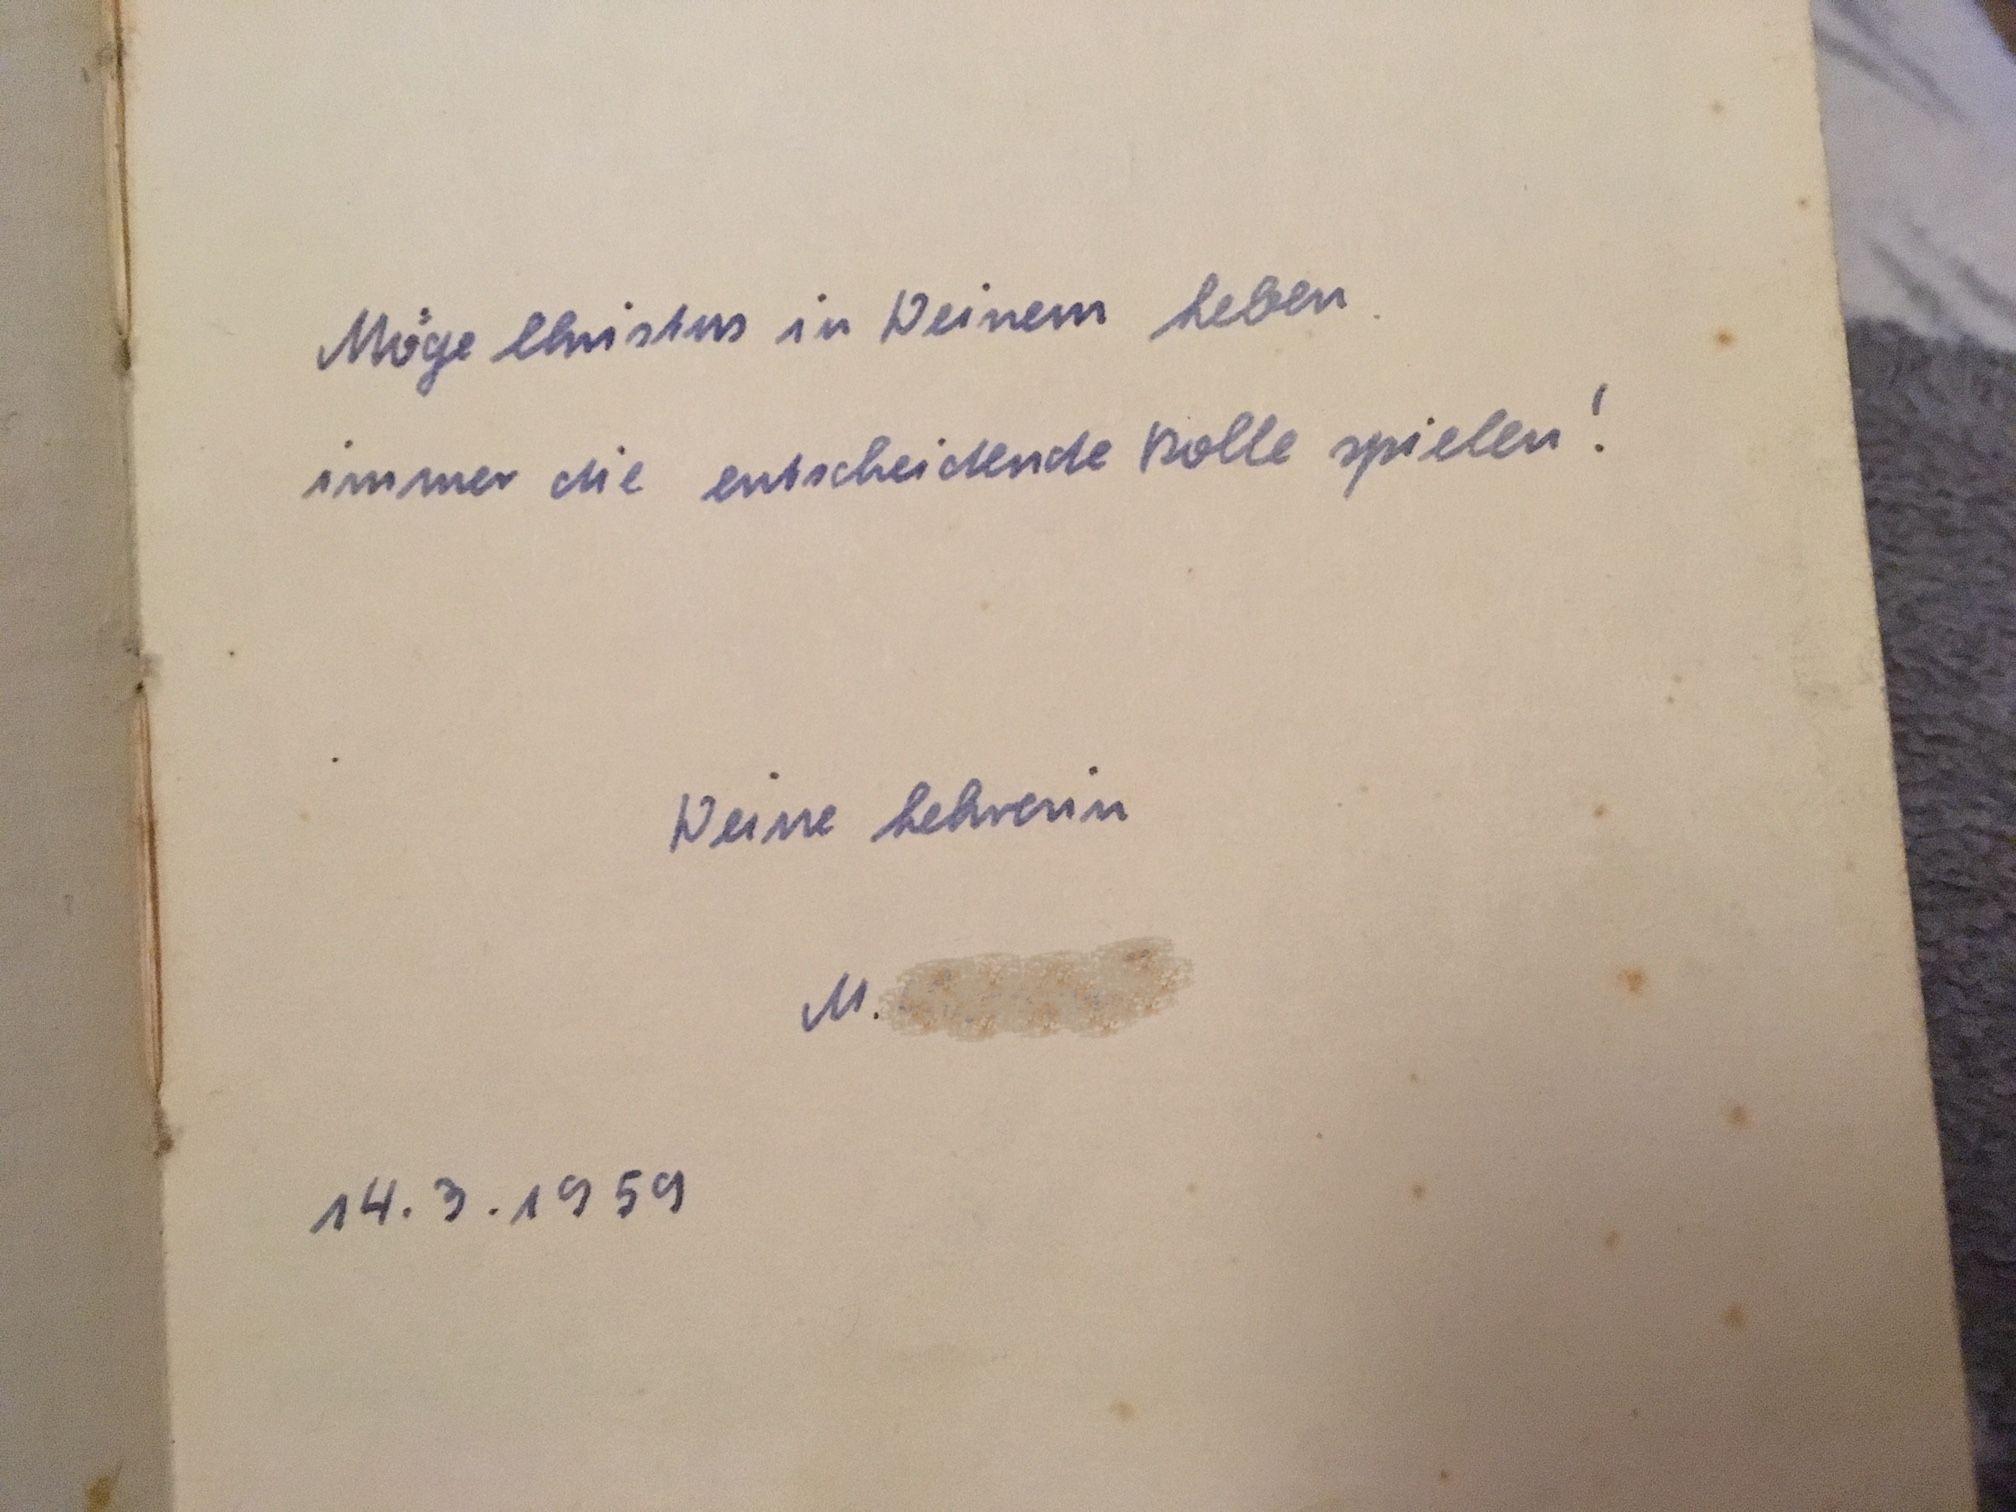 Möge Christus in Deinem Leben
immer die entscheidende Rolle spielen!
Deine Lehrerin
M.
14.3.1959